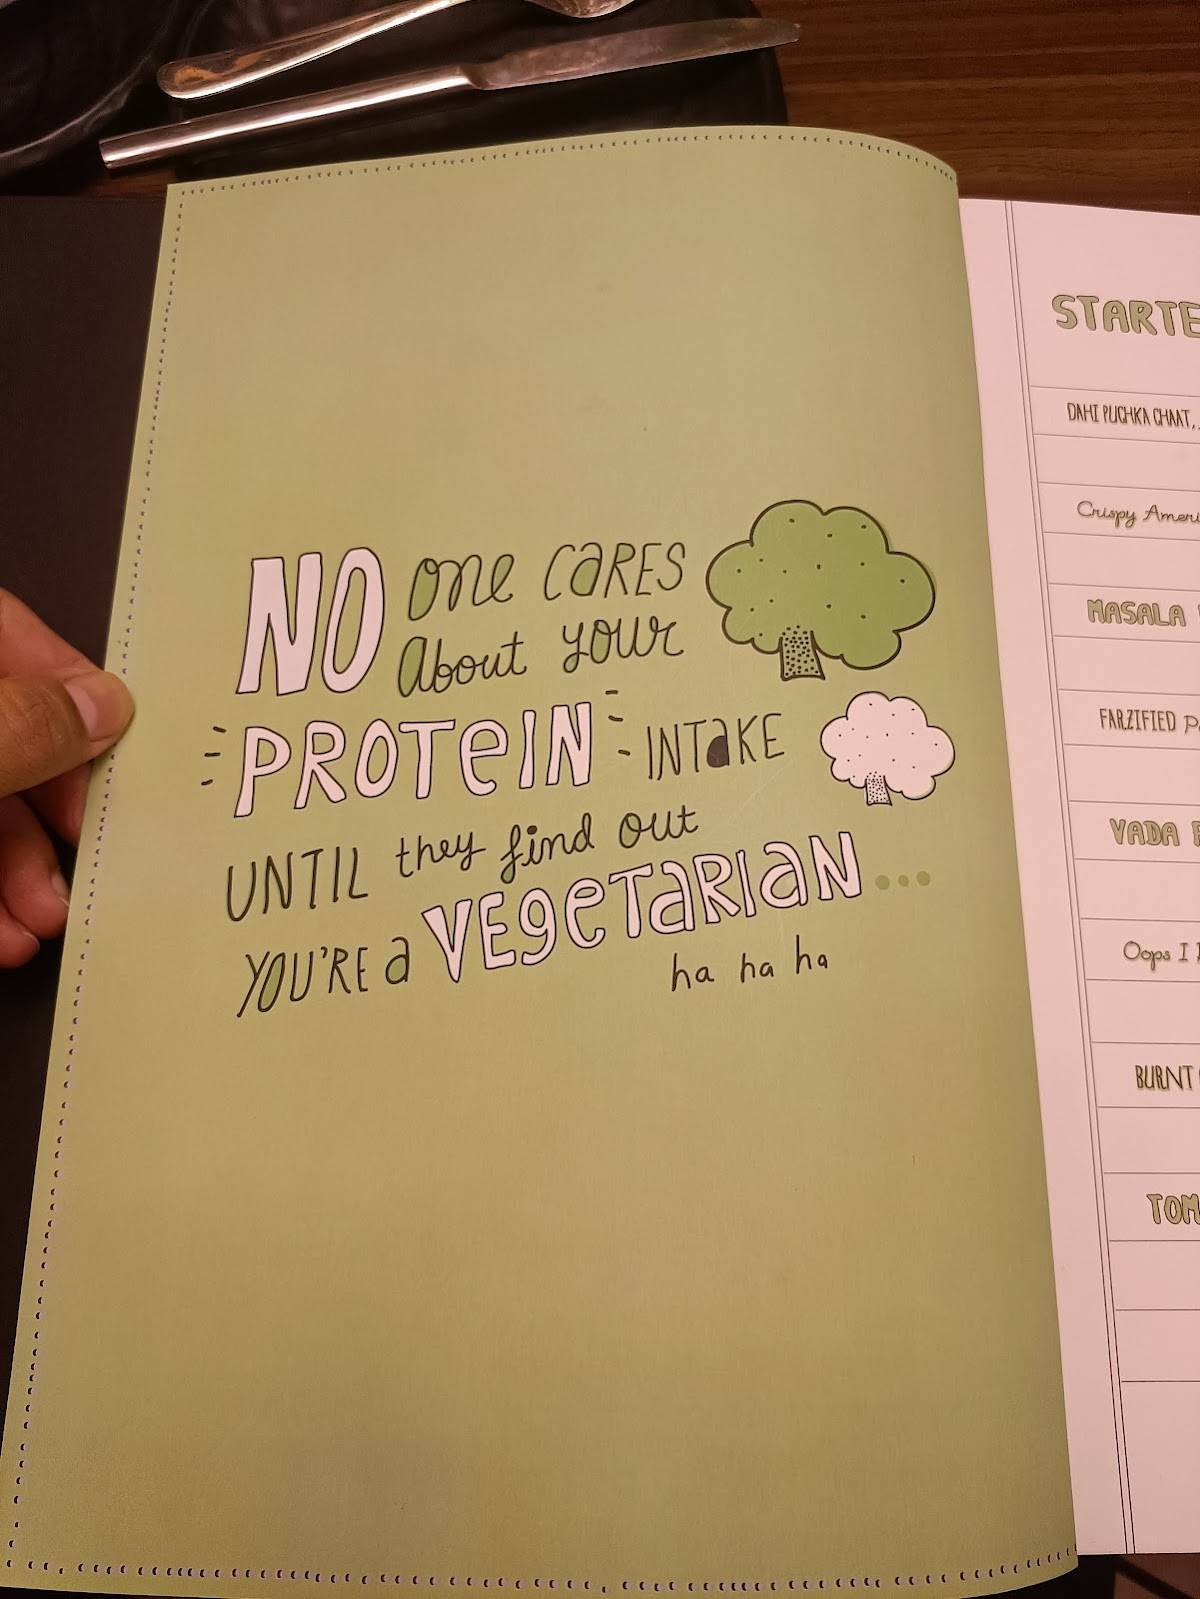 NO one cares
About your
PROTEIN INTAKE
UNTIL they find out
YOU'RE a VEgeTaRIaN...
ha ha ha
STARTE
DAHI PUCHKA CHAAT,
Crispy Ameri
MASALA
FARZIFIED
VADA
Oops I
BURNT
TOM